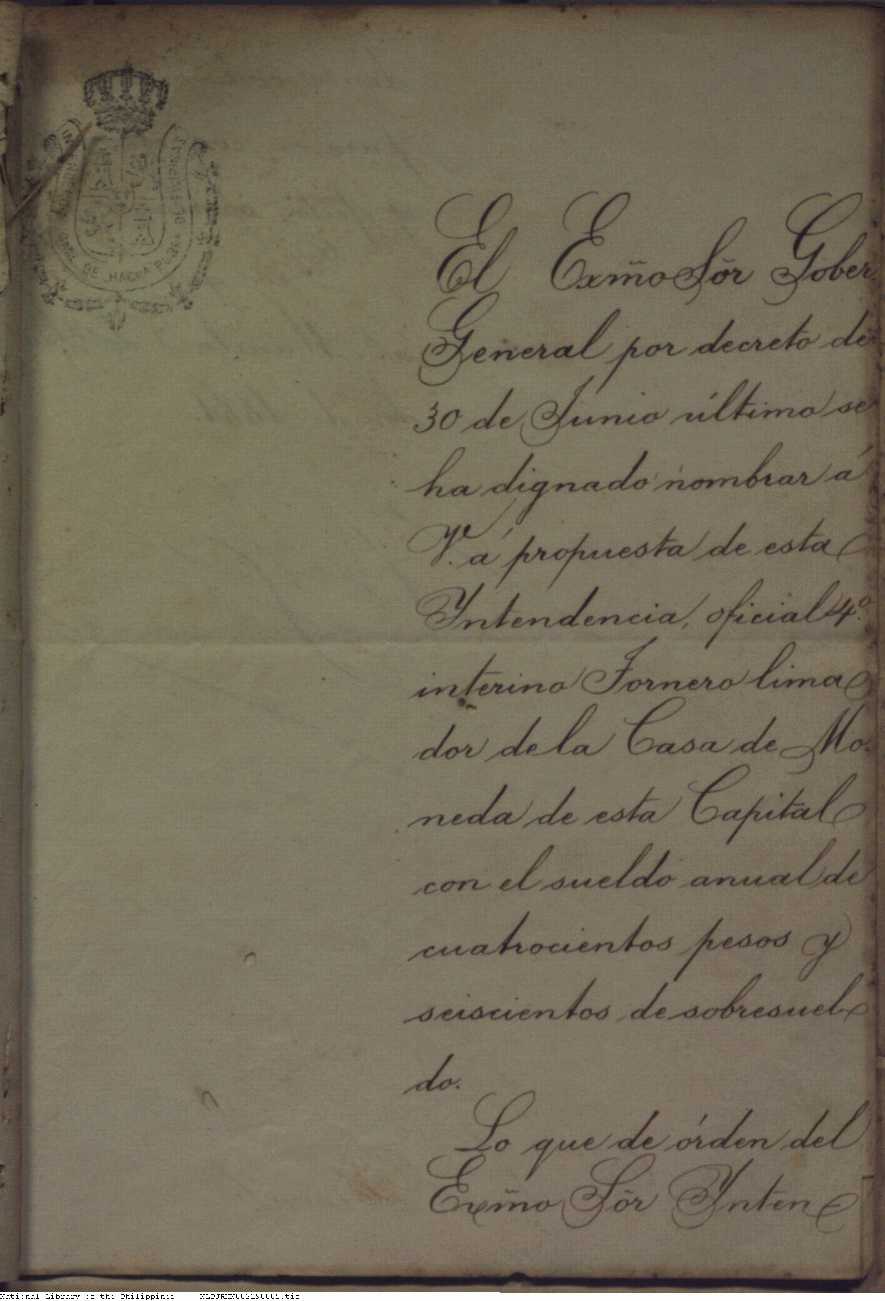 DE HACDA PUBCA DE FILIPINAS
El Exm̃o Sõr Gober
General por decreto de
30 de Junio último se
ha dignado nombrar á
V. á propuesta de esta
Yntendencia, oficial 4º.
interino Fornero lima
dor de la Casa de Mo-
neda de esta Capital
con el sueldo anual de
cuatrocientos pesos y
seiscientos de sobresuel-
do.
Lo que de órden del
Exm̃o Sõr Ynten
National Library of the Philippines